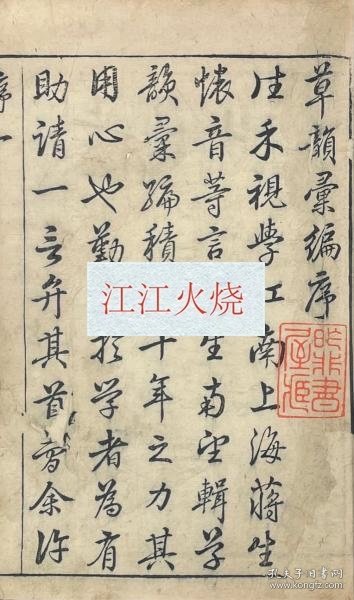 草韻彙編序
往禾視學江南上海蔣生
懐音等言 生南望輯草
韻彙編積 十年之力其
用心也勤 於學者為有
助請一言弁其首會余許
序一
江江火烧
孔夫子旧书网